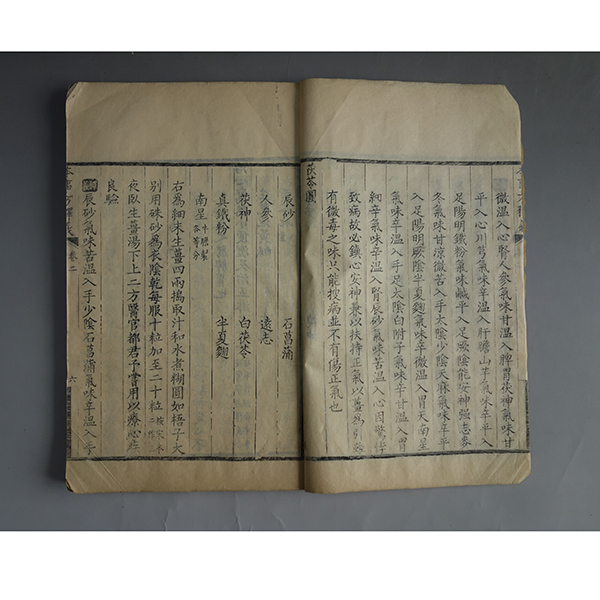 微溫入心腎人參氣味甘溫入脾胃茯神氣味甘
平入心川芎氣味辛溫入肝膽山芋氣味辛平入
足陽明鐵粉氣味鹹平入足厥陰能安神強志麥
冬氣味甘涼微苦入手太陰少陰天麻氣味辛平
入足陽明厥陰半夏麴氣味辛微溫入胃天南星
氣味辛溫入手足太陰白附子氣味辛甘溫入胃
細辛氣味辛溫入腎辰砂氣味苦溫入心因驚悸
致病故必鎮心安神兼以扶持正氣以薑為引
有微毒之味只能搜病並不有傷正氣也
茯苓圓
辰砂 石菖蒲
人參 遠志
茯神 白茯苓
真鐵粉 半夏麴
南星牛膽製各等分
右為細末生薑四兩搗取汁和水煮糊圓如梧子大
別用硃砂為衣陰乾每服十粒加至二十粒
夜臥生薑湯下上二方醫官都君予嘗用以療心疾
良驗
辰砂氣味苦溫入手少陰石菖蒲氣味辛溫入手
本事方釋義 卷二 六